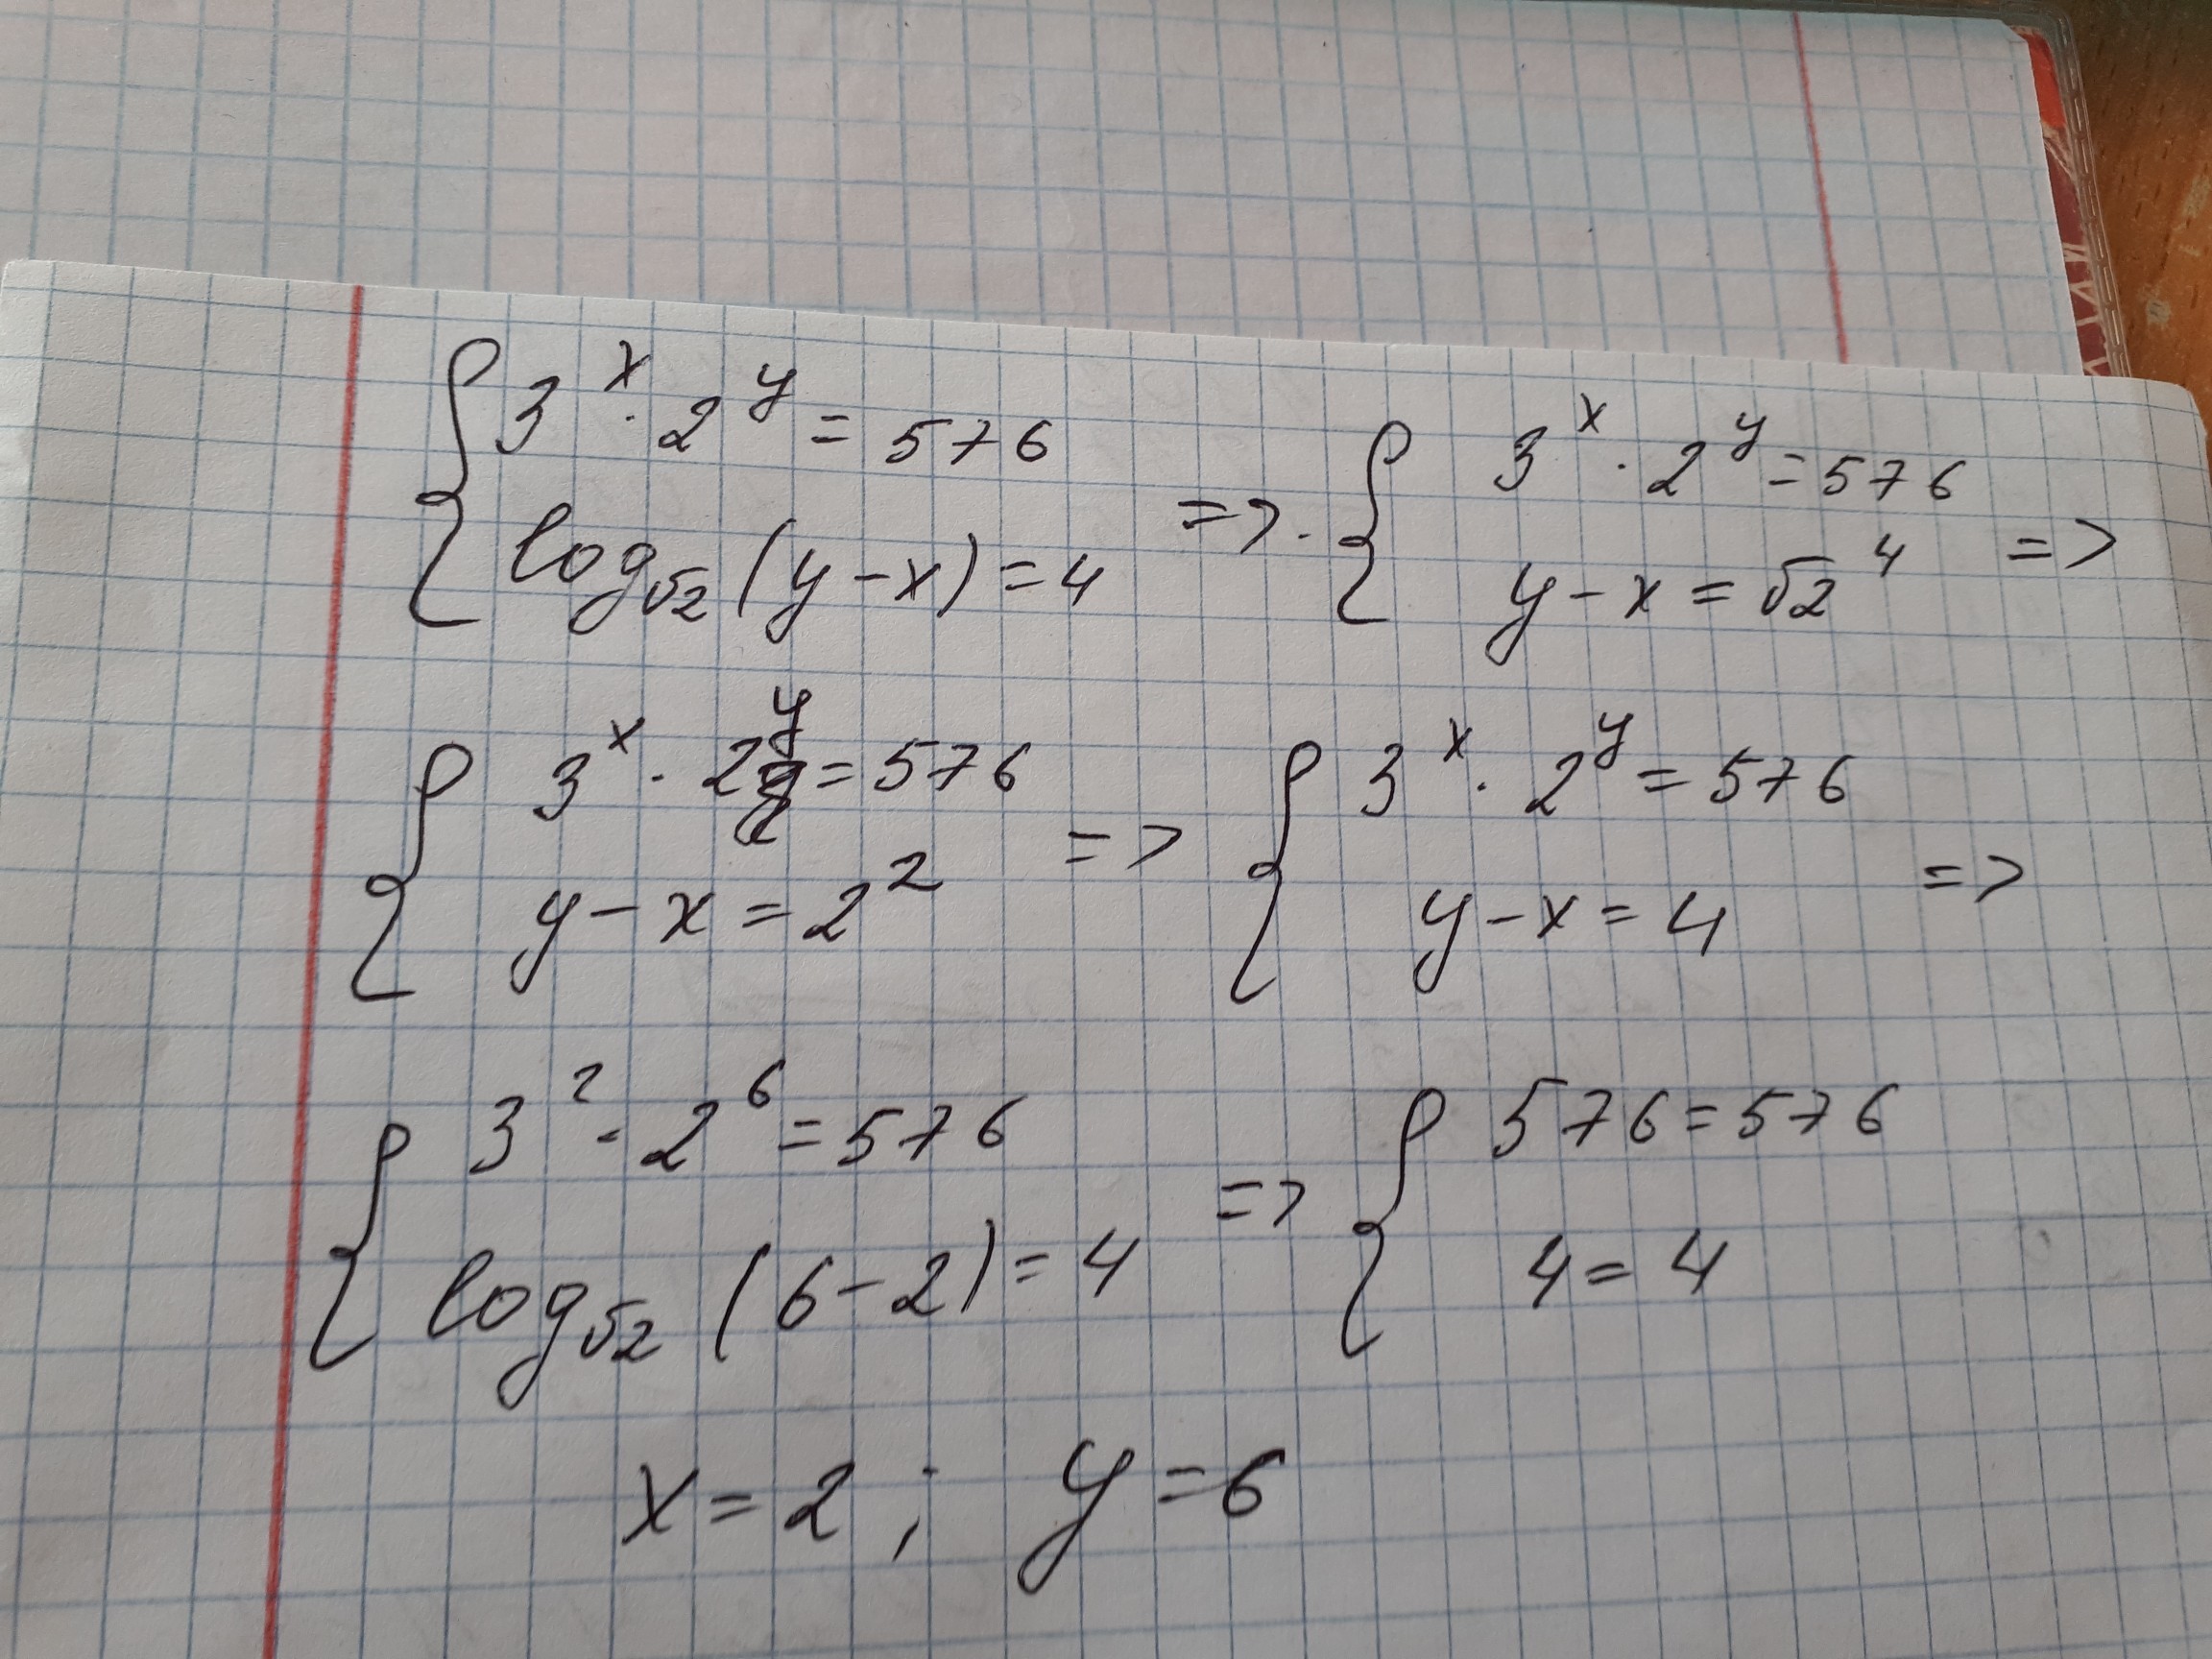 { 3^x · 2^y = 576
log_√2 (y - x) = 4 => { 3^x · 2^y = 576
y - x = √2^4 =>
{ 3^x · 2^y = 576
y - x = 2^2 => { 3^x · 2^y = 576
y - x = 4 =>
{ 3^2 · 2^6 = 576
log_√2 (6 - 2) = 4 => { 576 = 576
4 = 4
x = 2 ; y = 6